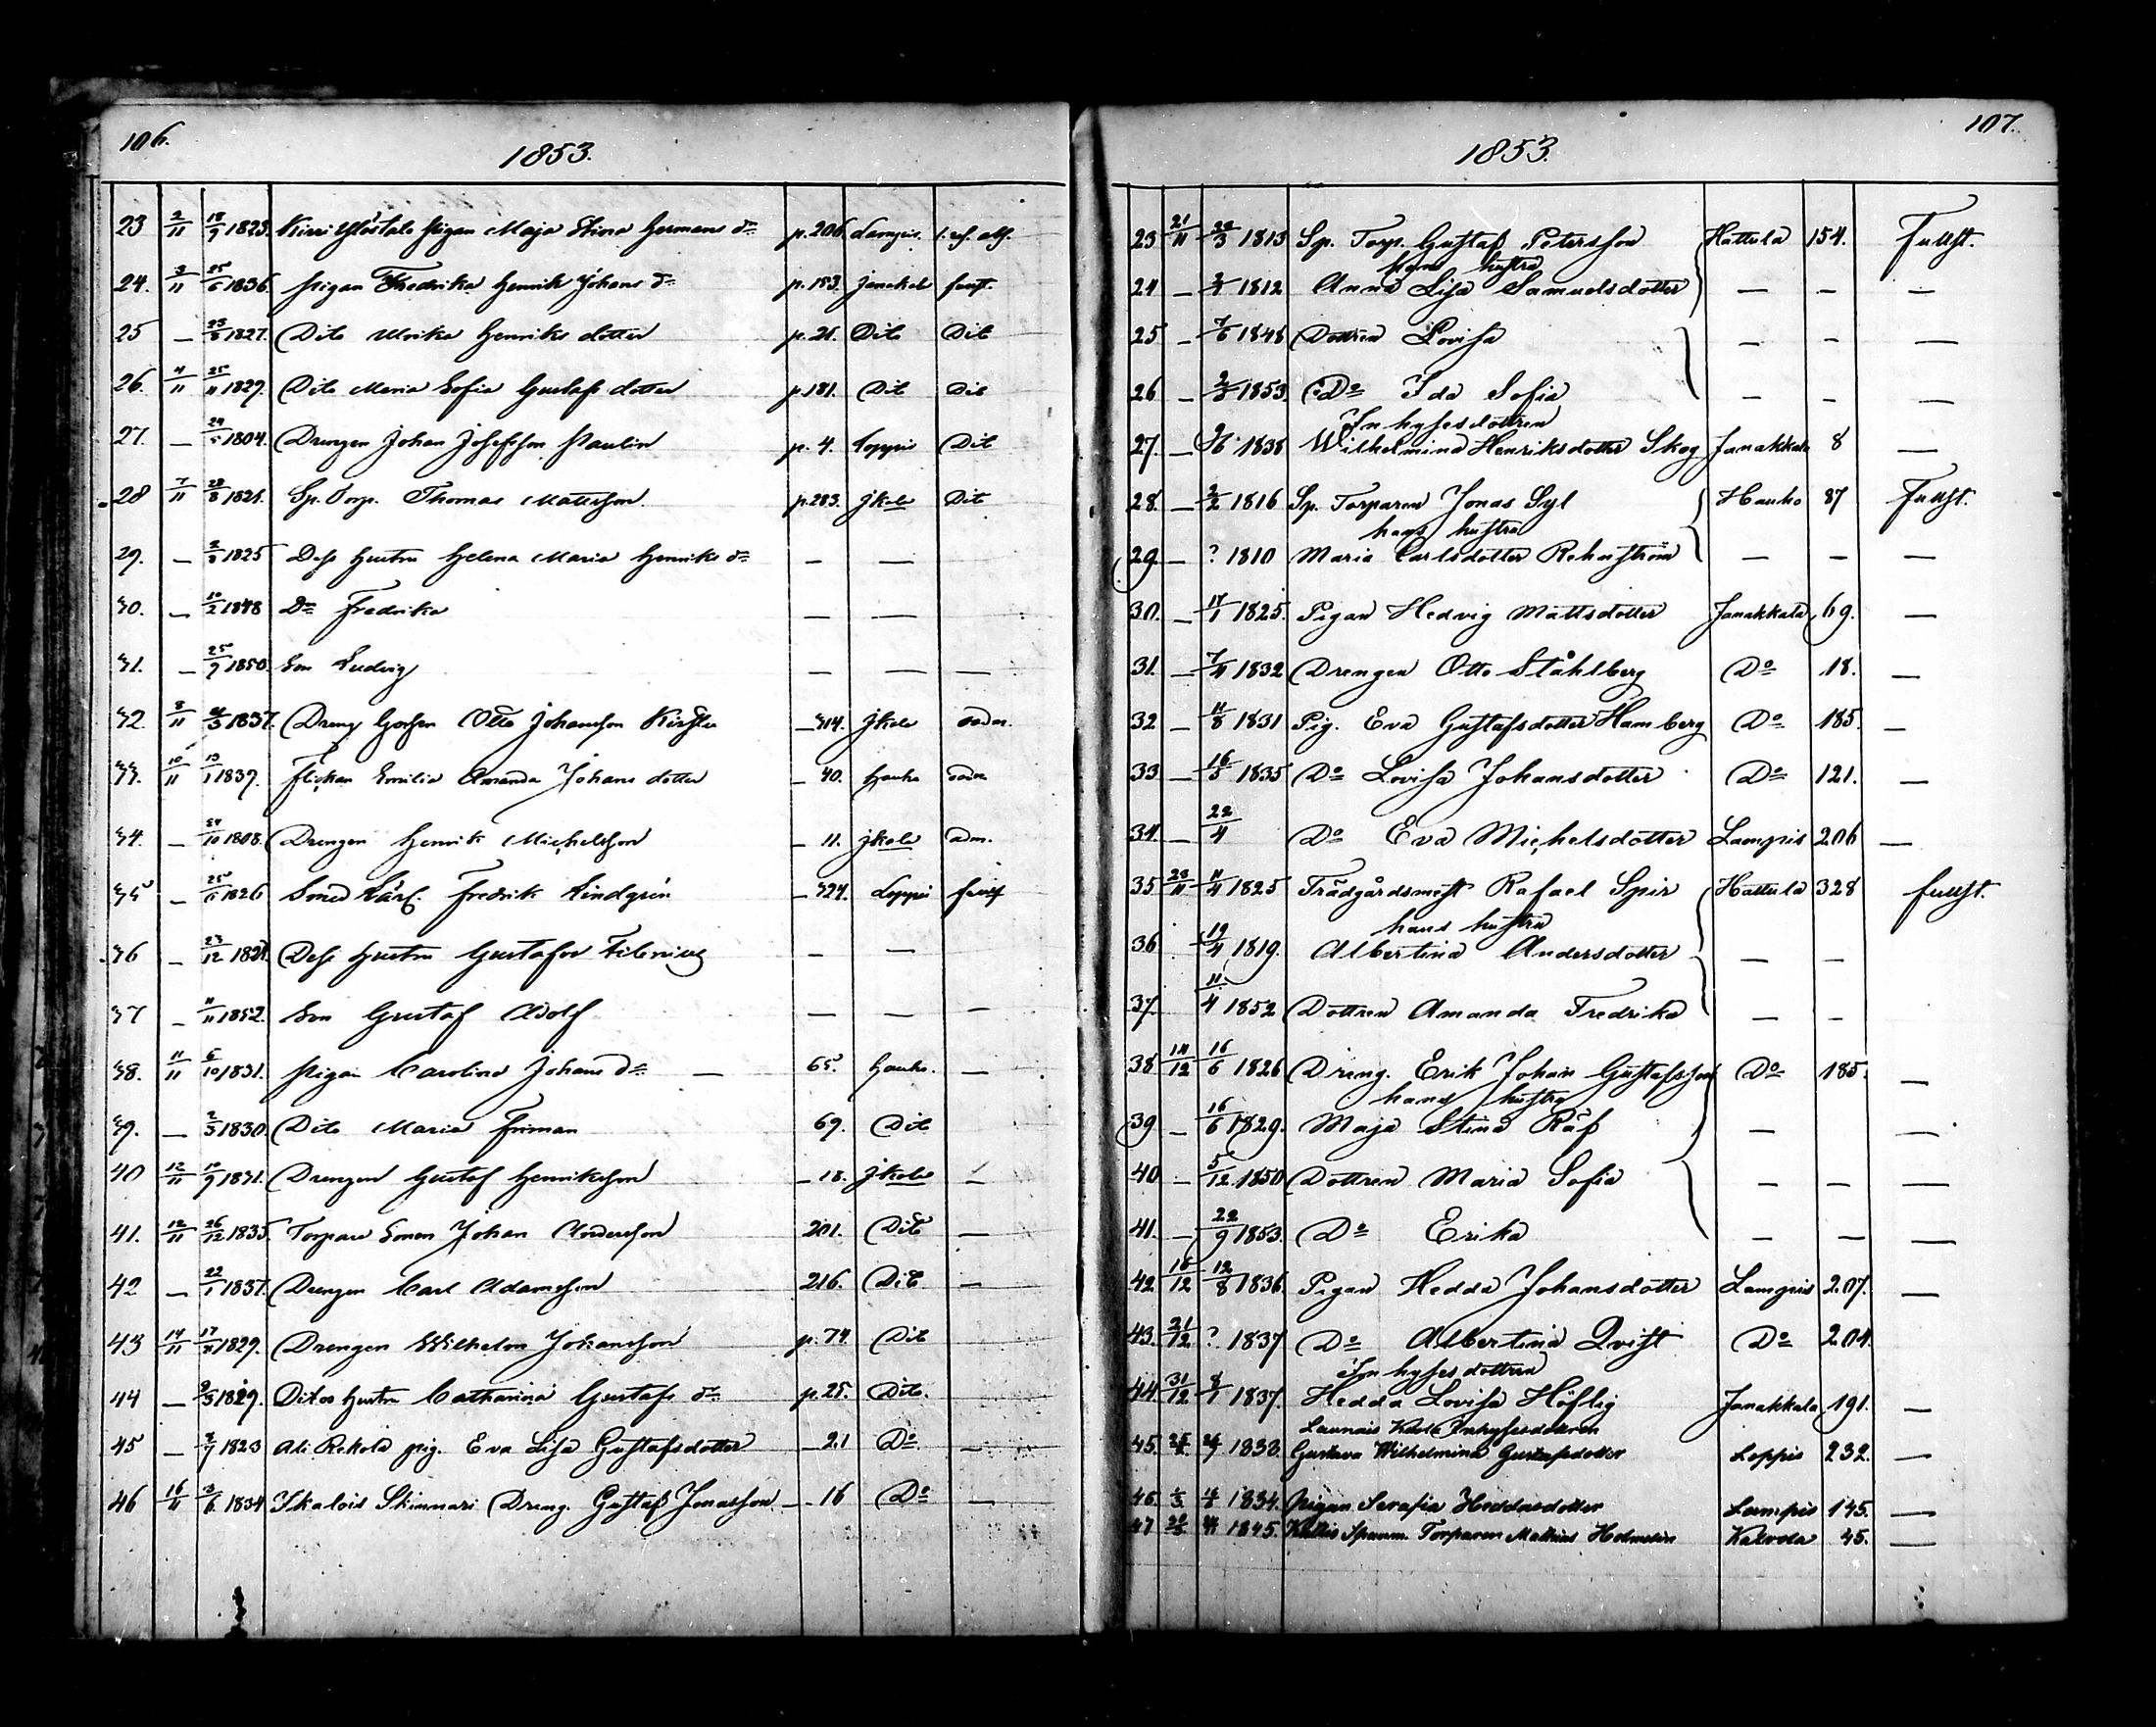 106.
1853.
23 2/11 18/9 1823. Pigan Maja Stina Hermans dr p. 206. Lampis.
24. 3/11 25/6 1836 Pigan Fredrika Henrik Johans dr p. 153. Janakala
25 — 23/8 1827. Dito Ulrika Henriks dotter p. 21. Dito Dito
26. 4/11 25/11 1829. Dito Maria Sofia Gustafs dotter p. 181. Dito Dito
27. — 24/5 1804. Drengen Johan Josefsson Paulin p. 4. Loppis Dito
28 7/11 28/8 1821. Sp. Torp. Thomas Mattsson p. 283. Jkala Dito
29. — 2/8 1825 Dess hustru Helena Maria Henriks dr — —
30. — 10/2 1848 Dr Fredrika — —
31. — 25/9 1850. Son Ludvig — — —
32. 8/11 1837. Dreng Gossen Otto Johansson — 314. Jkala
33. 10/11 13/1 1839. Flickan Emilia Amanda Johans dotter — 40. Hauho
34. — 1808. Drengen Henrik Michelsson — 11. Jkala
35 — 25/6 1826 Smed Lärl. Fredrik Lindgrén — 324. Loppis
36 — 23/12 1821. Dess hustru Gustafva — —
37 — 11/11 1852. Son Gustaf Adolf — — —
38. 11/11 6/10 1831. Pigan Carolina Johans dr — 65. Hauho. —
39. — 2/3 1830. Dito Maria Friman 69. Dito
40 12/11 10/9 1831. Drengen Gustaf Henriksson — 18. Jkala —
41. 12/11 26/12 1835. Torpare Sonen Johan Andersson 201. Dito —
42 — 22/1 1837. Drengen Carl Adamsson 216. Dito. —
43 14/11 1829. Drengen Wilhelm Johansson p. 74. Dito
44 — 1829. Ditos hustru Catharina Gustafs dr p. 25. Dito.
45 — 2/7 1823 Ali Rekola pig. Eva Lisa Gustafsdotter — 21 Do —
46 16/11 3/6 1834 Iskalois Skinnari Dreng. Gustaf Jonasson — 16 Do —
107.
1853.
23 21/11 22/3 1813 Sp. Torp. Gustaf Petersson Hattula 154. Fullst.
hans hustru
24 — 1812 Anna Lisa Samuelsdotter — — —
25 — 7/6 1848 Dottren Lovisa — — —
26 — 2/3 1853 Do Ida Sofia — — —
Inhysesdottren
27. — 1838 Wilhelmina Henriksdotter Skog Janakkala 8 —
28. — 2/2 1816 Sp. Torparen Jonas Syl Hauho 87 Fullst.
hans hustru
29. — ? 1810 Maria Carlsdotter Rehnström — — —
30. — 17/1 1825. Pigan Hedvig Mattsdotter Janakkala 69. —
31. — 7/4 1832 Drengen Otto Ståhlberg Do 18. —
32 — 11/8 1831 Pig. Eva Gustafsdotter Hamberg Do 185. —
33 — 16/5 1835 Do Lovisa Johansdotter Do 121. —
34. — 22/4 Do Eva Michelsdotter Lampis 206 —
35 23/11 11/4 1825 Trädgårdsmest Rafael Spir Hattula 328 fullst.
hans hustru
36 19/4 1819. Albertina Andersdotter — —
37. 11/4 1852 Dottren Amanda Fredrika — —
38 14/12 16/6 1826 Dreng. Erik Johan Gustafsson Do 185. —
hans hustru
39 — 16/6 1829. Maja Stina Räf — —
40 — 5/12 1850 Dottren Maria Sofia — — —
41. — 22/9 1853. Do Erika — — —
42 18/12 12/8 1836 Pigan Hedda Johansdotter Lampis 207. —
43. 21/12 ? 1837 Do Albertina Qvist Do 204.
Inhysesdottren
44. 31/12 8/1 1837. Hedda Lovisa Höflig Janakkala 191. —
Inhysesdottren
45. 1838. Gustava Wilhelmina Gustafsdotter Loppis 232. —
46. 1834. Pigan Serafia Heddasdotter Lampis 145. —
47 1845. Torparen Mathias Kalvola 45. —